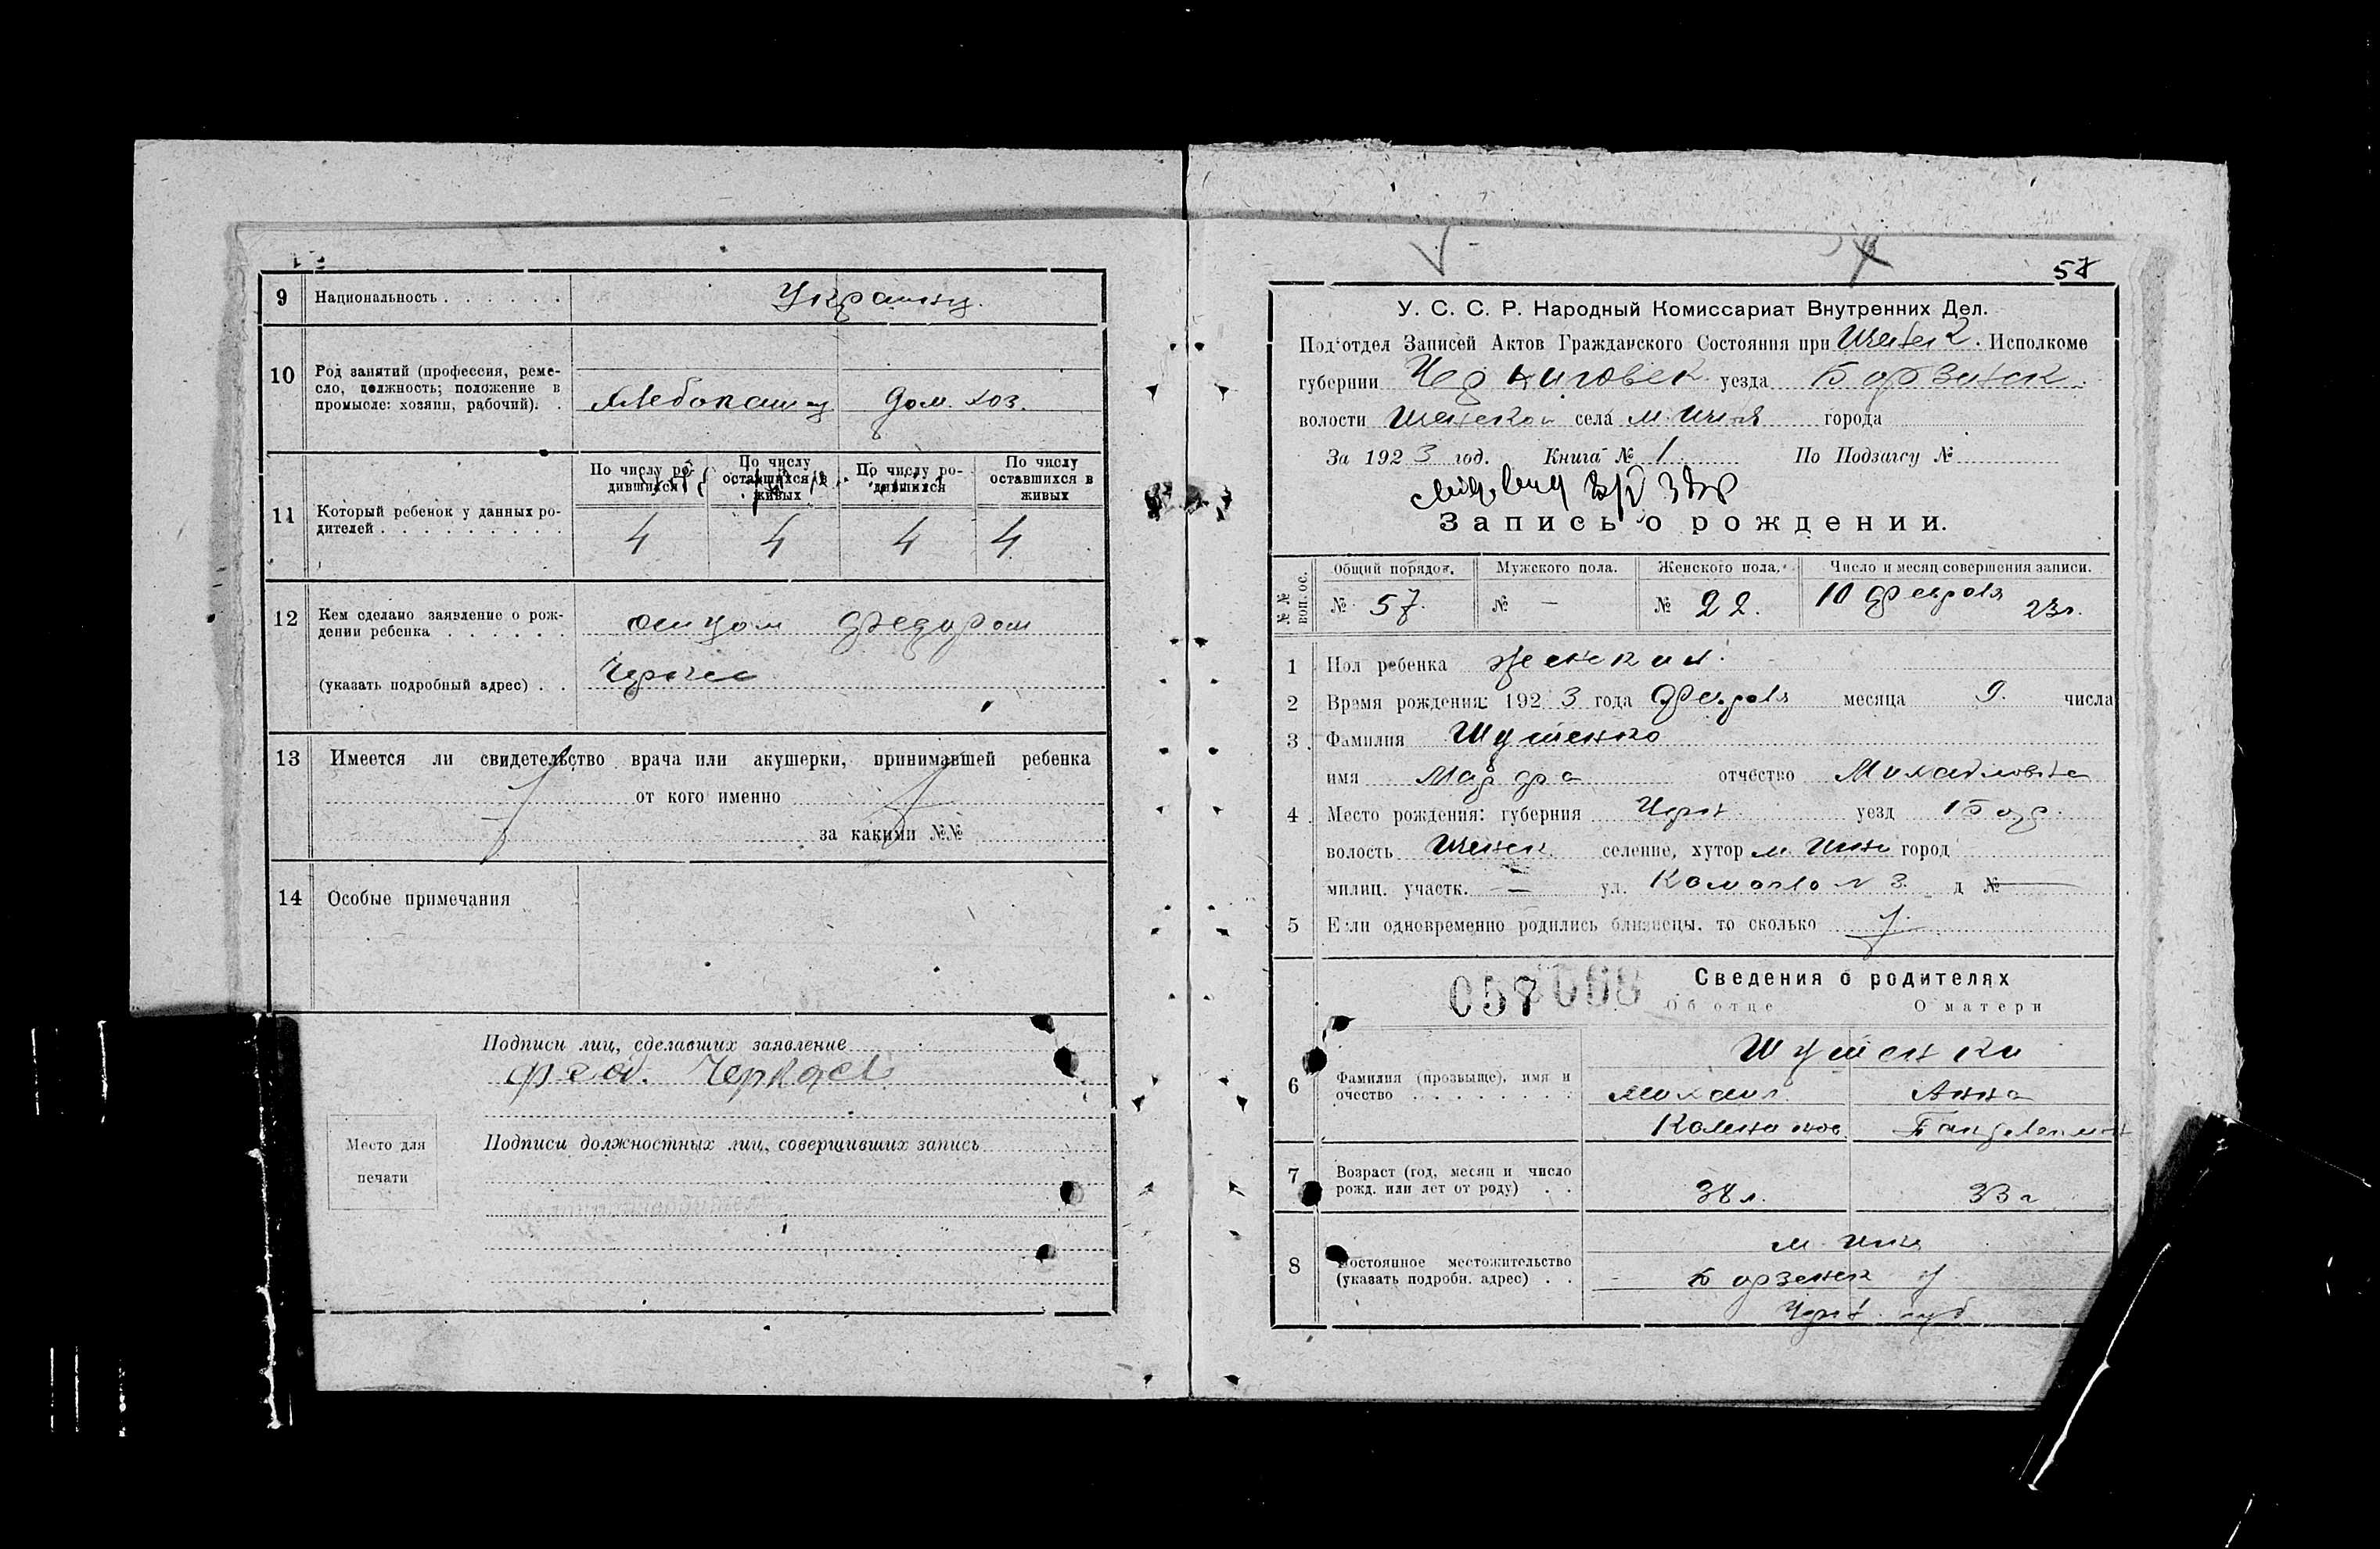 9 Национальность . . . . . . Украинц.
10 Род занятий (профессия, реме-
сло, должность; положение в
промысле: хозяин, рабочий). . Хлебопашец дом. хоз.
11 Который ребенок у данных ро-
дителей . . . . . . . . .
По числу ро-
дившихся
По числу
оставшихся в
живых
По числу ро-
дившихся
По числу
оставшихся в
живых
4 4 4 4
12 Кем сделано заявление о рож-
дении ребенка . . . . . . отцом Федором
(указать подробный адрес) . .
13 Имеется ли свидетельство врача или акушерки, принимавшей ребенка
от кого именно
за какими №№
14 Особые примечания
Подписи лиц, сделавших заявление
Фед. Черкас
Место для
печати
Подписи должностных лиц, совершивших запись
57
У. С. С. Р. Народный Комиссариат Внутренних Дел.
Под'отдел Записей Актов Гражданского Состояния при Ичнянск. Исполкоме
губернии Черниговск. уезда Борзенск.
волости Ичнянской села м. Ичня города
За 1923 год. Книга № 1. По Подзагсу №
Запись о рождении.
№ № воп. ос.
Общий порядок. Мужского пола. Женского пола. Число и месяц совершения записи.
№ 57. № — № 22. 10 февраля 23г.
1 Пол ребенка женский.
2 Время рождения: 1923 года февраля месяца 9. числа
3 Фамилия Шутенко
имя Марфа отчество Михайловна
4 Место рождения: губерния Черн. уезд Борз.
волость Ичнянск. селение, хутор м. Ичня город
милиц. участк. — ул. д №
5 Если одновременно родились близнецы, то сколько
057
Сведения о родителях
Об отце О матери
Шутенки
6 Фамилия (прозвыще), имя и
очество . . . . . . . . .
Михаил Анна
7 Возраст (год, месяц и число
рожд. или лет от роду) . . 38 л. 33 г
8 Постоянное местожительство
(указать подробн. адрес) . .
м. Ичня
Борзенск у
Черн. губ